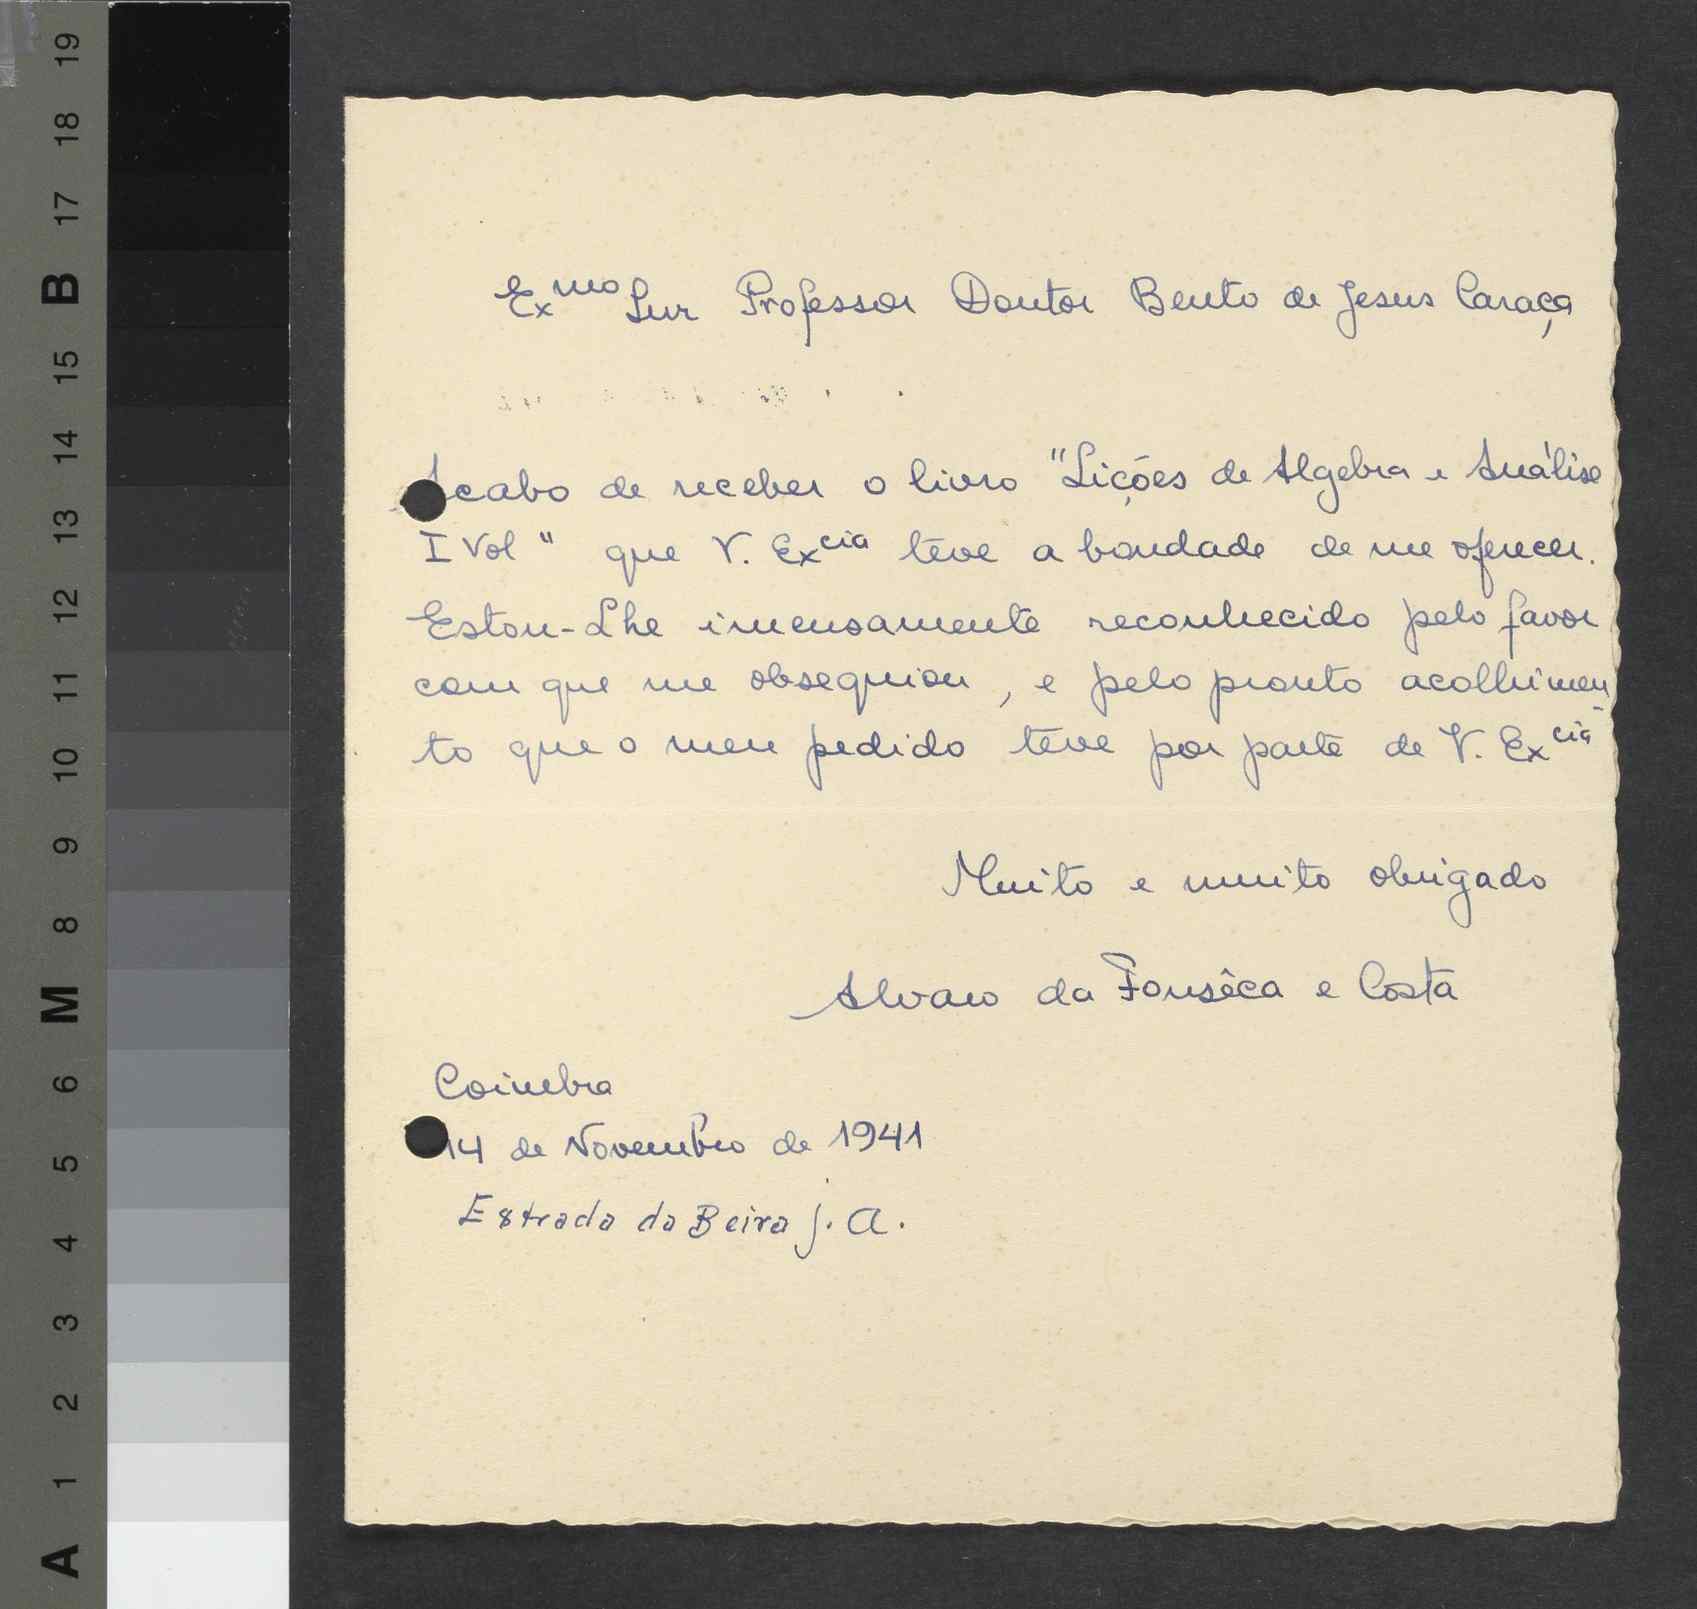 Exmo Snr Professor Doutor Bento de Jesus Caraça
Acabo de receber o livro "Lições de Algebra e Análise
I Vol" que V. Excia têve a bondade de me oferecer.
Estou-Lhe imensamente reconhecido pelo favor
com que me obsequiou, e pelo pronto acolhimen-
to que o meu pedido têve por parte de V. Excia
Muito e muito obrigado
Alvaro da Fonsêca e Costa
Coimbra
14 de Novembro de 1941
Estrada da Beira J. A.
A 1 2 3 4 5 6 M 8 9 10 11 12 13 14 15 B 17 18 19